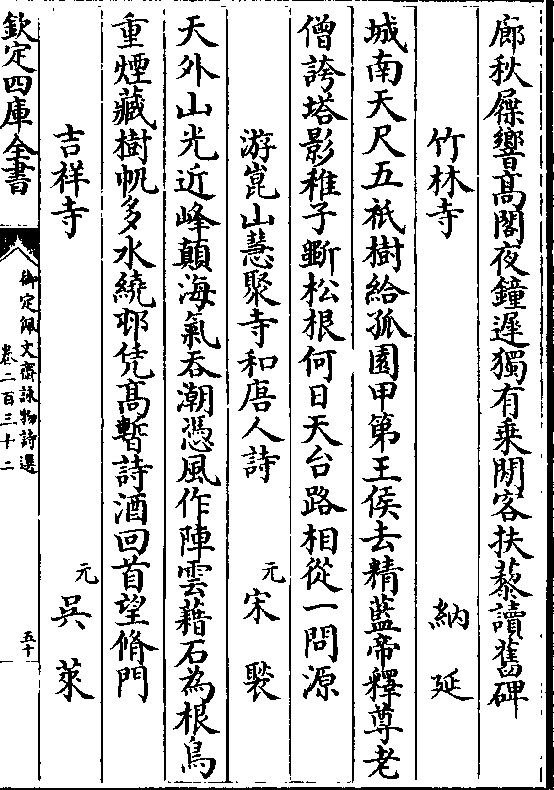 廊秋屧響高閣夜鐘遲獨有乗閒客扶藜讀舊碑
竹林寺 納延
城南天尺五祇樹給孤園甲第王侯去精藍帝釋尊老
僧誇塔影稚子斲松根何日天台路相從一問源
游崑山慧聚寺和唐人詩 元 宋褧
天外山光近峰顛海氣吞潮憑風作陣雲藉石為根鳥
重煙藏樹帆多水繞邨凭高暫詩酒回首望脩門
吉祥寺 元 吳萊
欽定四庫全書
御定佩文齋詠物詩選
卷二百三十二
五十